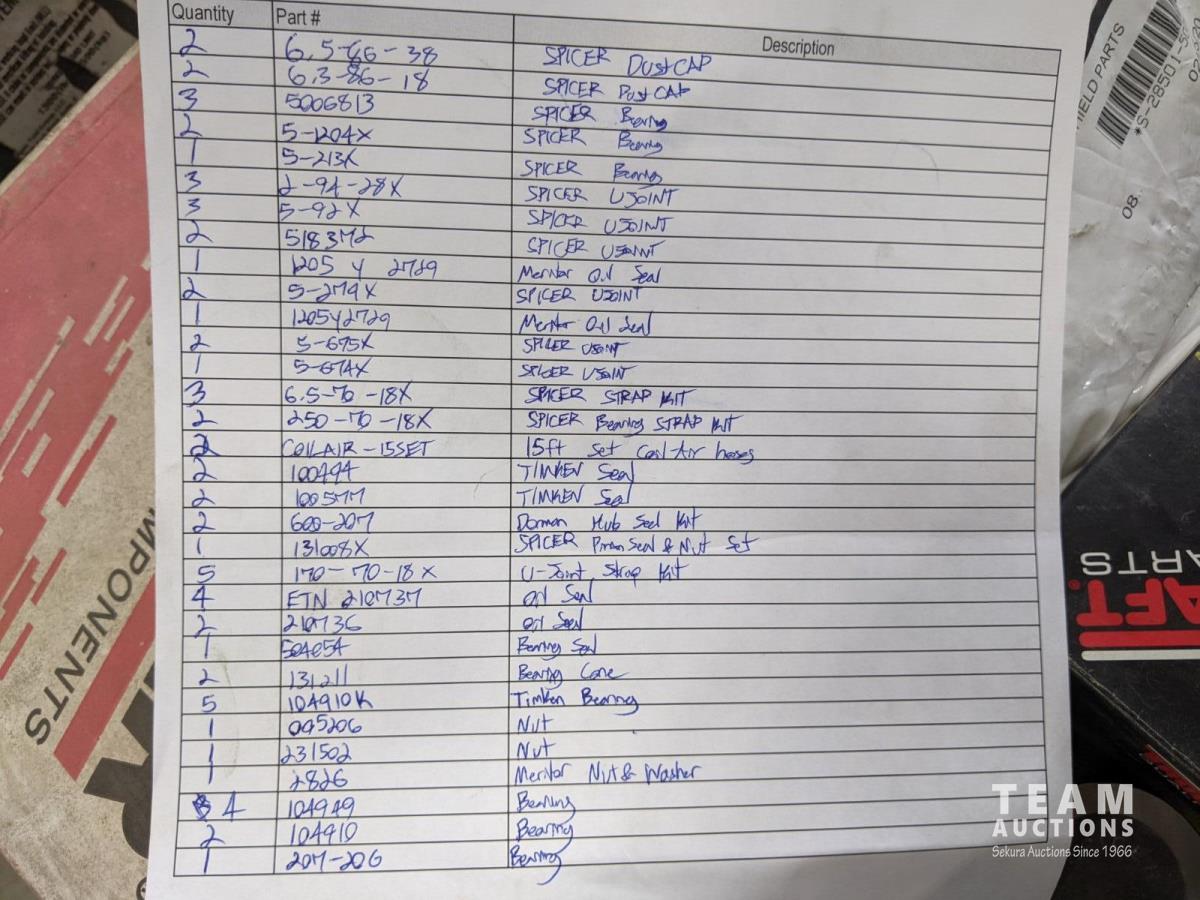 Quantity Part # Description
2 6.5-66-38 SPICER Dust CAP
2 6.3-86-18 SPICER Dust CAP
3 5006813 SPICER Bearing
2 5-1204X SPICER Bearing
1 5-213X SPICER Bearing
3 2-94-28X SPICER UJOINT
3 5-92X SPICER UJOINT
2 518372 SPICER UJOINT
1 1205 Y 2729 Meritor Oil Seal
2 5-279X SPICER UJOINT
1 1205Y2729 Meritor Oil Seal
2 5-675X SPICER UJOINT
1 5-674X SPICER UJOINT
3 6.5-70-18X SPICER STRAP KIT
2 250-70-18X SPICER Bearing STRAP KIT
2 COILAIR-15SET 15ft Set Coil-Air hoses
2 100494 TIMKEN Seal
2 100577 TIMKEN Seal
2 600-207 Dorman Hub Seal Kit
1 131008X SPICER Pinion Seal & Nut Set
5 170-70-18X U-Joint Strap Kit
4 ETN 210737 Oil Seal
2 210736 Oil Seal
1 504054 Bearing Seal
2 131211 Bearing Cone
5 104910K Timken Bearing
1 095206 Nut
1 231502 Nut
1 2826 Meritor Nut & Washer
4 104949 Bearing
2 104910 Bearing
1 207-206 Bearing
IELD PARTS
*S-28501-5
08.
MPONENTS
AFT.
ARTS
TEAM
AUCTIONS
Sekura Auctions Since 1966